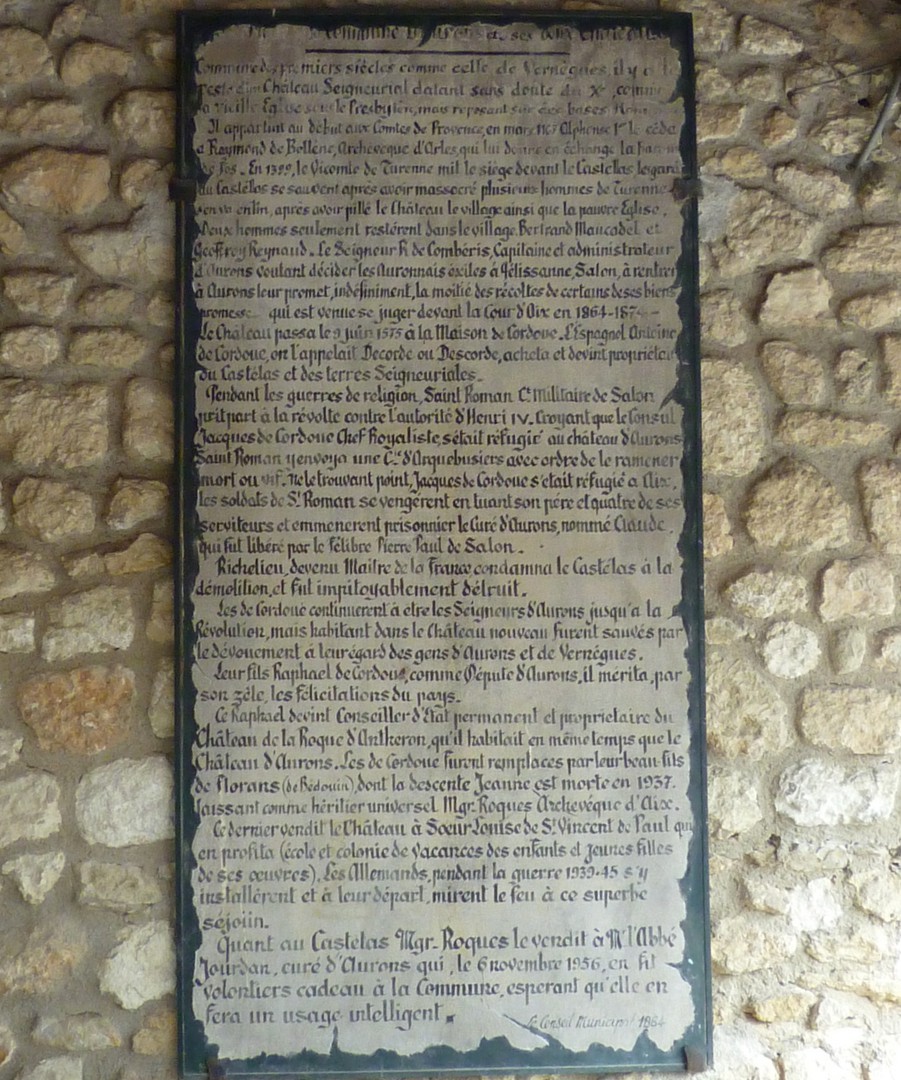 Commune d'Aurons et ses deux
Commune des premiers siècles comme celle de Vernègues, il y a
reste d'un Château Seigneurial datant sans doute du Xe, comme
la vieille Eglise sous le Presbytère, mais reposant sur des bases
Il appartint au début aux Comtes de Provence, en mars Alphonse 1er le céda
a Raymond de Bollène, Archevêque d'Arles, qui lui donne en échange la
de Fos. En 1399, le Vicomte de Turenne mit le siège devant le Castellas, les gara
du Castélas se sauvent après avoir massacré plusieurs hommes de Turenne
s'en va enfin, après avoir pillé le Château le village ainsi que la pauvre Eglise.
Deux hommes seulement restèrent dans le village, Bertrand Maucadel et
Geoffroy Reynaud. Le Seigneur R. de Combéris, Capitaine et administrateur
d'Aurons voulant décider les Auronnais exilés à Pélissanne, Salon, à rentrer
à Aurons leur promet, indéfiniment, la moitié des récoltes de certains de ses biens
promesse qui est venue se juger devant la Cour d'Aix en 1864-1874 -
Le Château passa le 9 juin 1575 à la Maison de Cordoue. L'Espagnol Antoine
de Cordoue, on l'appelait Decorde ou Descorde, acheta et devint propriétaire
du Castélas et des terres Seigneuriales.
Pendant les guerres de religion, Saint Roman Ct Militaire de Salon
prit part à la révolte contre l'autorité d'Henri IV. Croyant que le Consul
Jacques de Cordoue Chef Royaliste, s'était réfugié au château d'Aurons
Saint Roman y envoya une Cie d'Arquebusiers avec ordre de le ramener
mort ou vif. Ne le trouvant point, Jacques de Cordoue s'était réfugié a Aix.
les soldats de St Roman se vengèrent en tuant son père et quatre de ses
serviteurs et emmenèrent prisonnier le Curé d'Aurons, nommé Claude
qui fut libéré par le Félibre Pierre Paul de Salon.
Richelieu, devenu Maitre de la France condamna le Castélas à la
démolition, et fut impitoyablement détruit.
Les de Cordoue continuèrent à être les Seigneurs d'Aurons jusqu'a la
Révolution, mais habitant dans le Château nouveau furent sauvés par
le dévouement à leur égard des gens d'Aurons et de Vernègues.
Leur fils Raphael de Cordoue, comme Député d'Aurons, il mérita, par
son zèle, les félicitations du pays.
Ce Raphael devint Conseiller d'Etat permanent et propriétaire du
Château de la Roque d'Antheron, qu'il habitait en même temps que le
Château d'Aurons. Les de Cordoue furent remplacés par leur beau-fils
de Florans (de Bédouin), dont la descente Jeanne est morte en 1937.
laissant comme héritier universel Mgr. Roques Archevêque d'Aix.
Ce dernier vendit le Château à Sœur Louise de St Vincent de Paul qui
en profita (école et colonie de vacances des enfants et jeunes filles
de ses œuvres). Les Allemands, pendant la guerre 1939-45 s'y
installèrent et à leur départ, mirent le feu à ce superbe
séjour.
Quant au Castelas Mgr. Roques le vendit à Mr l'Abbé
Jourdan, curé d'Aurons qui, le 6 novembre 1956, en fit
volontiers cadeau à la Commune, espérant qu'elle en
fera un usage intelligent.
Le Conseil Municipal 1984